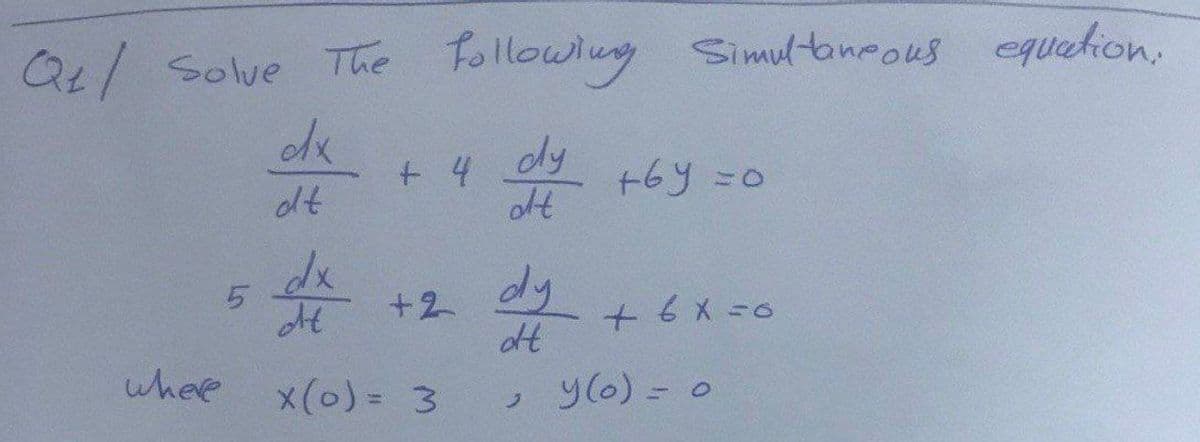 Q1/ Solve The following Simultaneous equation.
dx/dt + 4 dy/dt +6y =0
5 dx/dt +2 dy/dt + 6x =0
where x(0) = 3 , y(0) = 0